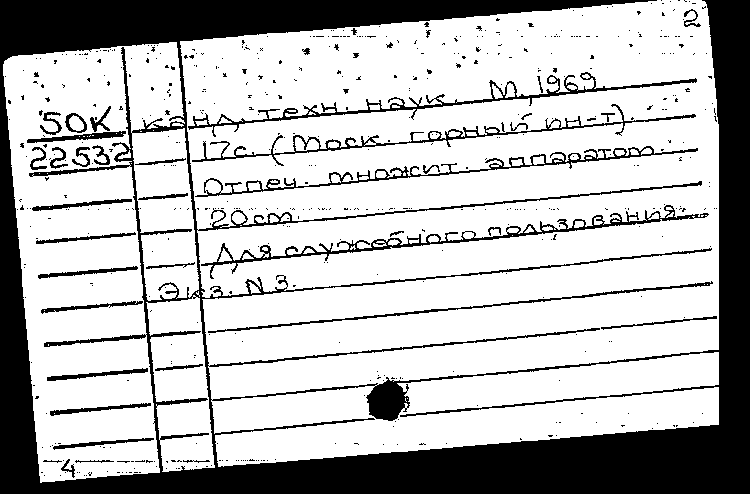 2
50К канд. техн. наук. М., 1969.
22532 17с. (Моск. горный ин-т).
Отпеч. множит. аппаратом.
20cm.
Для служебного пользования.
Экз. N 3.
4